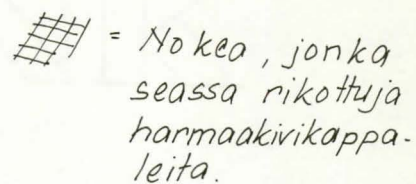 = Nokea, jonka
seassa rikottuja
harmaakivikappa-
leita.